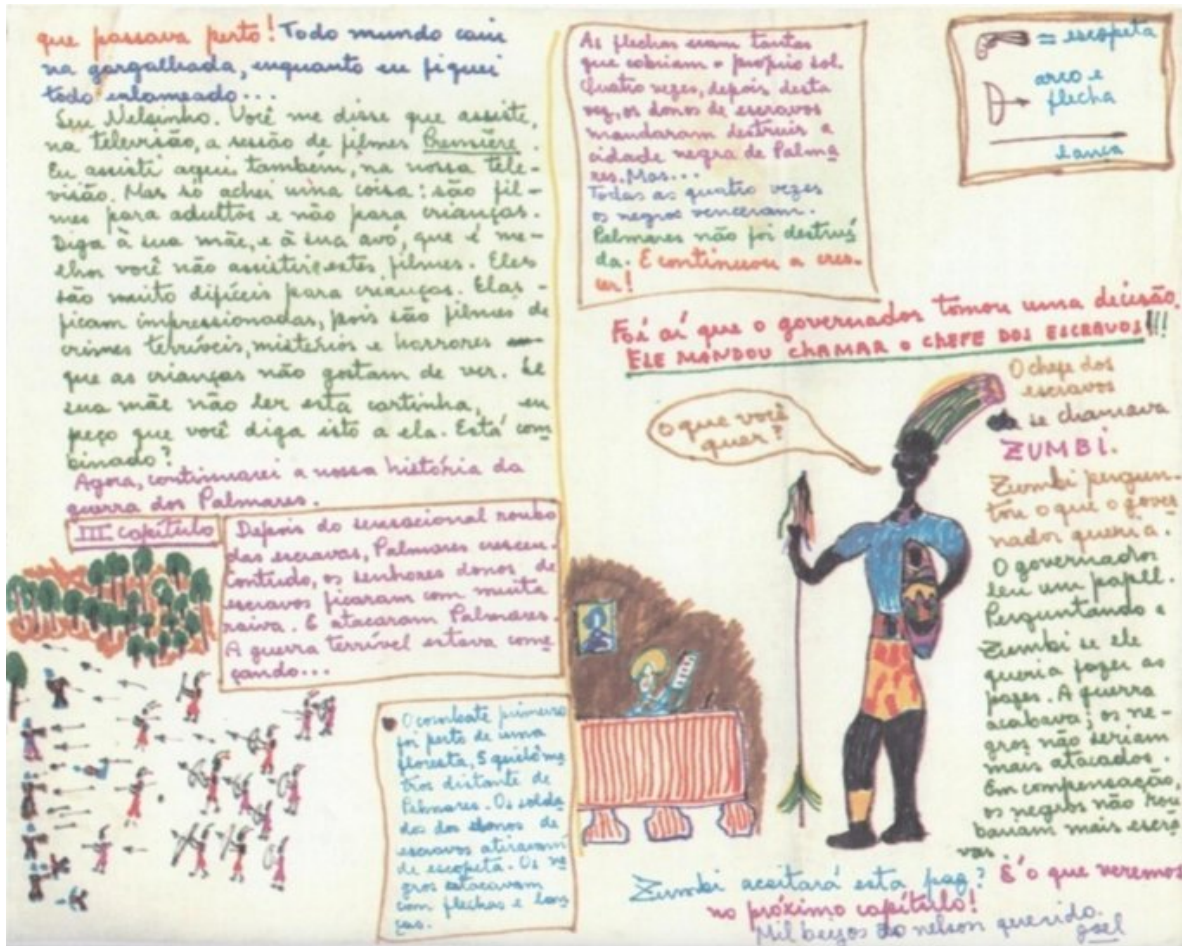 que passava perto! Todo mundo caiu
na gargalhada, enquanto eu fiquei
todo enlameado...
Seu Nelsinho. Você me disse que assiste,
na televisão, a sessão de filmes Première.
Eu assisti aqui também, na nossa tele-
visão. Mas só achei uma coisa: são fil-
mes para adultos e não para crianças.
Diga à sua mãe, e à sua avó, que é me-
lhor você não assistir estes filmes. Eles
são muito difíceis para crianças. Elas
ficam impressionadas, pois são filmes de
crimes terríveis, mistérios e horrores
que as crianças não gostam de ver. Se
sua mãe não ler esta cartinha, eu
peço que você diga isto a ela. Está com
binado?
Agora, continuarei a nossa história da
guerra dos Palmares.
III capítulo
Depois do sensacional roubo
das escravas, Palmares cresceu.
Contudo, os senhores donos de
escravos ficaram com muita
raiva. E atacaram Palmares.
A guerra terrível estava come
çando...
O combate primeiro
foi perto de uma
floresta, 5 quilôme
tros distante de
Palmares. Os solda
dos dos donos de
escravos atiravam
de escopeta. Os ne
gros atacavam
com flechas e lan
ças.
As flechas eram tantas
que cobriam o próprio sol.
Quatro vezes, depois desta
vez, os donos de escravos
mandaram destruir a
cidade negra de Palma
res. Mas...
Todas as quatro vezes
os negros venceram.
Palmares não foi destruí
da. E continuou a cres-
cer!
= escopeta
arco e
flecha
lança
Foi aí que o governador tomou uma decisão.
ELE MANDOU CHAMAR O CHEFE DOS ESCRAVOS!!!
O que você
quer?
O chefe dos
escravos
se chamava
ZUMBI.
Zumbi pergun-
tou o que o gover
nador queria.
O governador
leu um papel.
Perguntando a
Zumbi se ele
queria fazer as
pazes. A guerra
acabava; os ne-
gros não seriam
mais atacados.
Em compensação,
os negros não rou
bariam mais escra
vas.
Zumbi aceitará esta paz? É o que veremos
no próximo capítulo!
Mil beijos do nelson querido.
joel